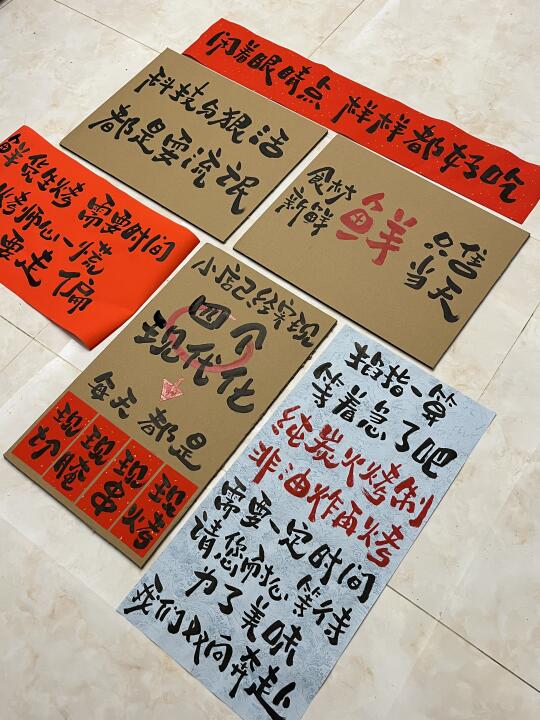 闭着眼睛点 样样都好吃
科技与狠活
都是耍流氓
食材
新鲜
鲜
只售
当天
鲜货生烤 需要时间
烤师心一慌
要走偏
小店已经实现
四个
现代化
每天都是
现切
现腌
现串
现烤
掐指一算
等着急了吧
纯炭火烤制
非油炸再烤
需要一定时间
请您耐心等待
为了美味
我们双向奔赴